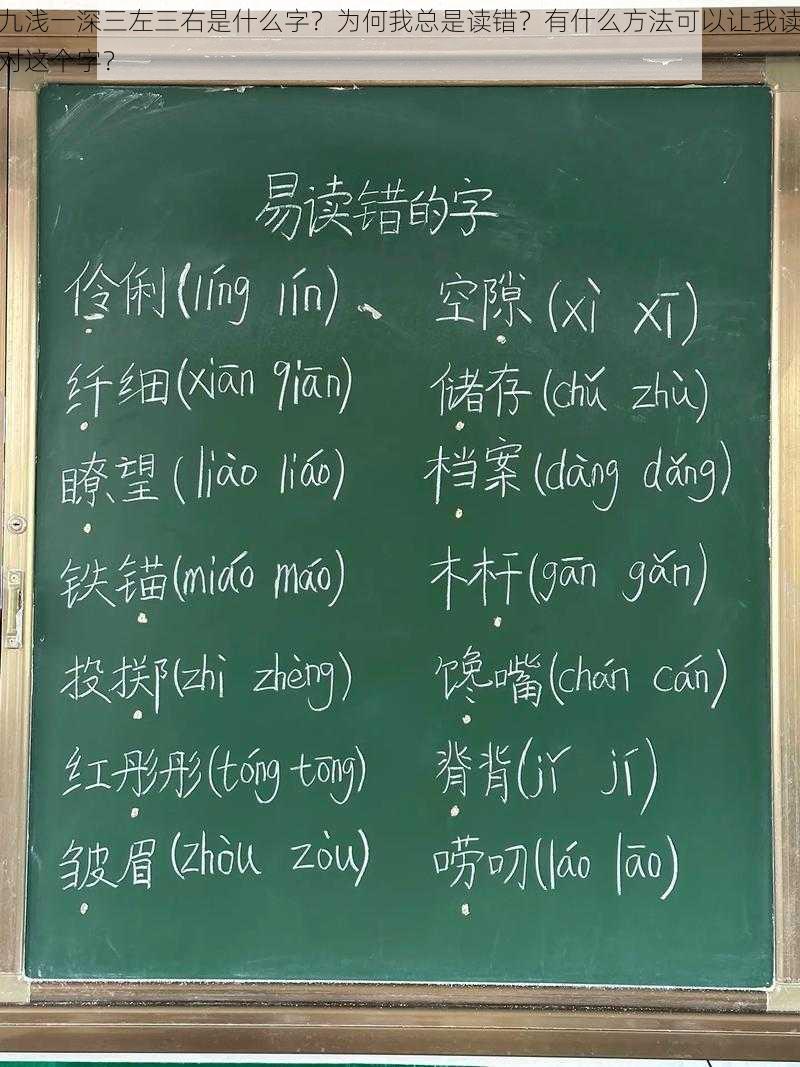 九浅一深三左三右是什么字？为何我总是读错？有什么方法可以让我读
对这个字？
易读错的字
伶俐(líng lín)
空隙(xì xī)
纤细(xiān qiān)
储存(chǔ zhù)
瞭望(liào liáo)
档案(dàng dǎng)
铁锚(miáo máo)
木杆(gān gǎn)
投掷(zhì zhèng)
馋嘴(chán cán)
红彤彤(tóng tōng)
脊背(jǐ jí)
皱眉(zhòu zòu)
唠叨(láo lāo)